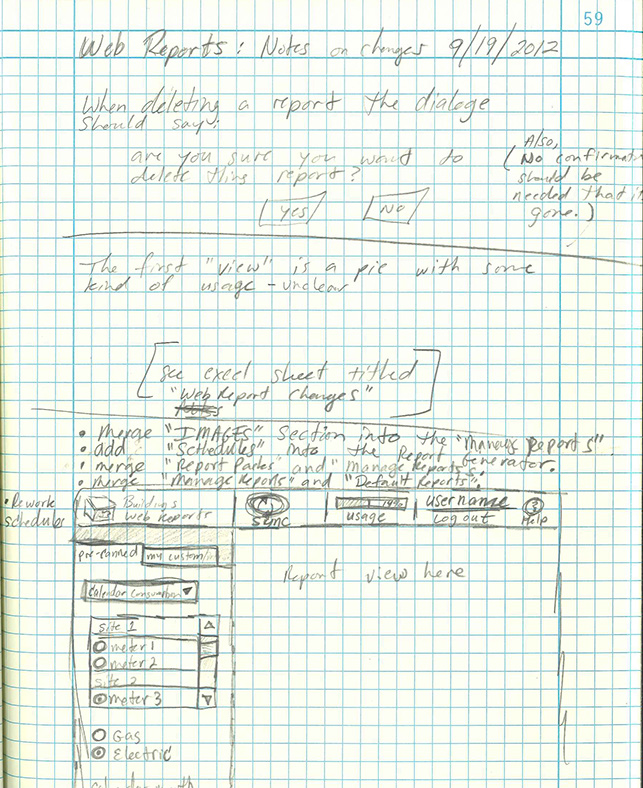 59
Web Reports: Notes on changes 9/19/2012
When deleting a report the dialoge
should say:
are you sure you want to
delete this report?
(Also,
No confirmati
should be
needed that i
gone.)
Yes No
The first "view" is a pic with some
kind of usage - unclear
see excel sheet titled
"Web Report Changes"
• Merge "IMAGES" Section into the "Manage Reports".
• add "Schedules" into the Report Generator.
• merge "Report Packs" and "Manage Reports".
• merge "Manage Reports" and "Default Reports".
• Rework
schedules
Buildings
Web Reports
Sync
14%
usage
username
Log out
?
Help
pre-canned my custom
Report view here
Calendar Consumption ▼
Site 1
meter 1
meter 2
site 2
meter 3
Gas
Electric